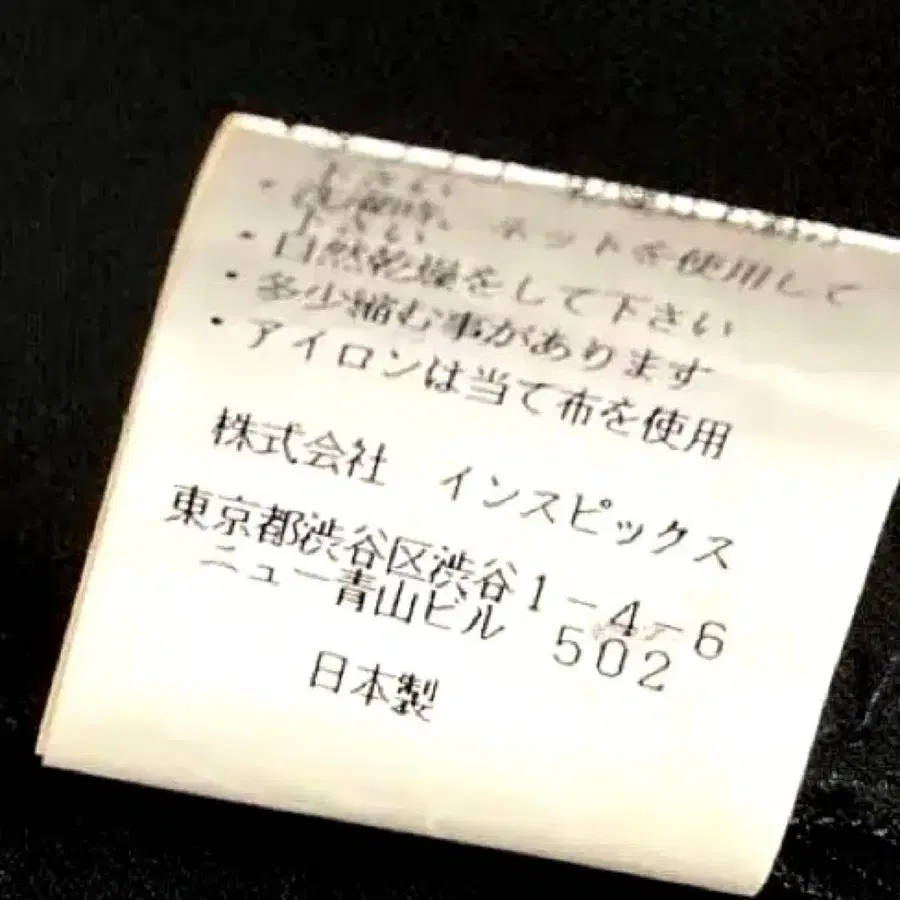 下さい
・洗濯時、ネットを使用して
下さい
・自然乾燥をして下さい
・多少縮む事があります
・アイロンは当て布を使用
株式会社 インスピックス
東京都渋谷区渋谷1-4-6
ニュー青山ビル 502
日本製